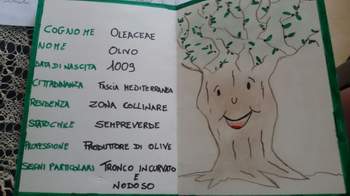 COGNOME OLEACEAE
NOME OLIVO
DATA DI NASCITA 1009
CITTADINANZA FASCIA MEDITERRANEA
RESIDENZA ZONA COLLINARE
STATO CIVILE SEMPREVERDE
PROFESSIONE PRODUTTORE DI OLIVE
SEGNI PARTICOLARI TRONCO INCURVATO
E
NODOSO